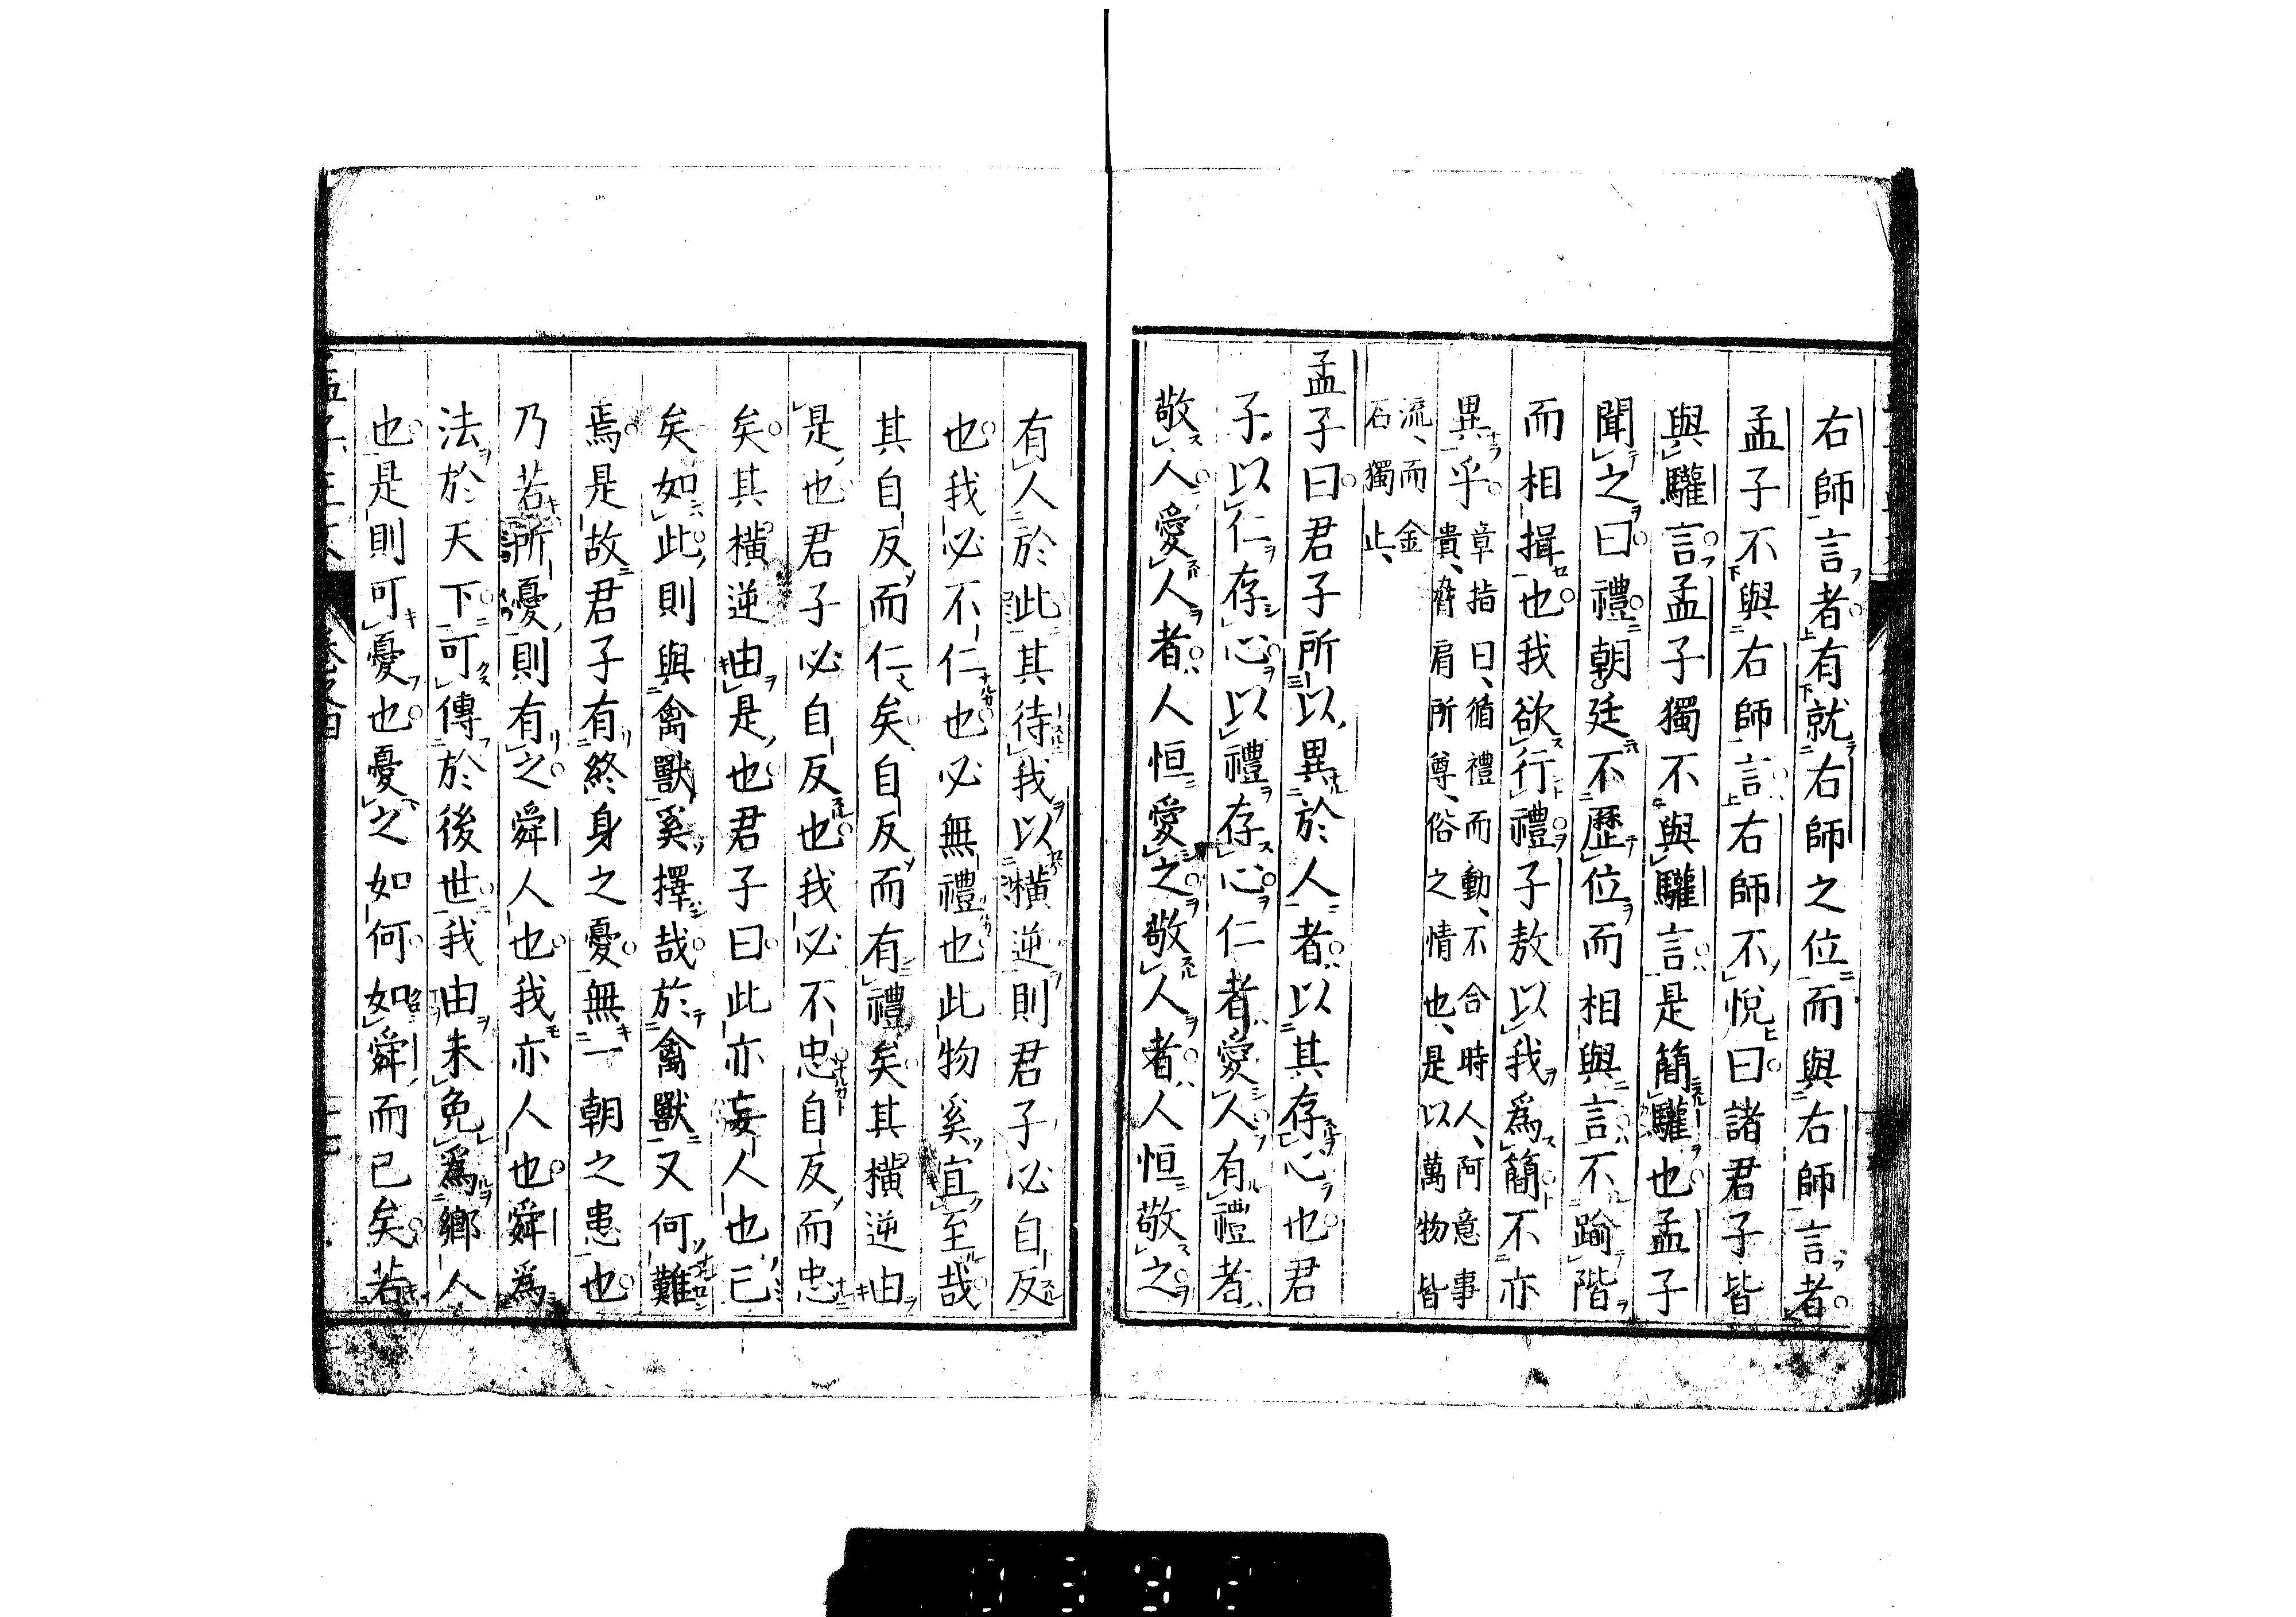 右師言者有就右師之位而與右師言者
孟子不與右師言右師不悅曰諸君子皆
與驩言孟子獨不與驩言是簡驩也孟子
聞之曰禮朝廷不歷位而相與言不踰階
而相揖也我欲行禮子敖以我爲簡不亦
異乎
章指曰、循禮而動、不合時人、阿意事
貴、脅肩所尊、俗之情也、是以萬物皆
流、而金
石獨止、
孟子曰君子所以異於人者以其存心也君
子以仁存心以禮存心仁者愛人有禮者
敬人愛人者人恒愛之敬人者人恒敬之
有人於此其待我以橫逆則君子必自反
也我必不仁也必無禮也此物奚宜至哉
其自反而仁矣自反而有禮矣其橫逆由
是也君子必自反也我必不忠自反而忠
矣其橫逆由是也君子曰此亦妄人也已
矣如此則與禽獸奚擇哉於禽獸又何難
焉是故君子有終身之憂無一朝之患也
乃若所憂則有之舜人也我亦人也舜爲
法於天下可傳於後世我由未免爲鄉人
也是則可憂也憂之如何如舜而已矣若